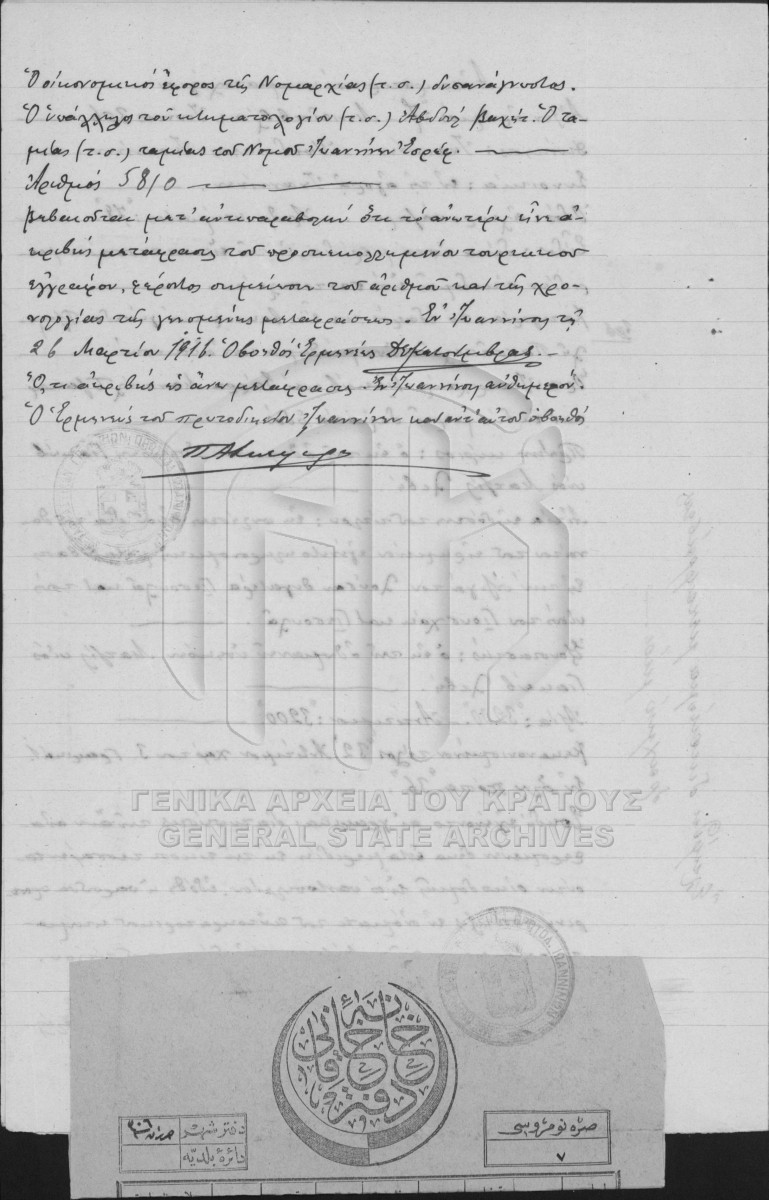 Ὁ οἰκονομικός ἔφορος τῆς Νομαρχίας (τ.σ.) δυσανάγνωστος.
Ὁ ὑπάλληλος τοῦ κτηματολογίου (τ.σ.) Ἀβδούλ Βαχήτ. Ὁ τα-
μίας (τ.σ.) ταμίας τοῦ Νομοῦ Ἰωαννίνων Ἐσρέφ.
Ἀριθμός 5810
Βεβαιοῦται μετ' ἀντιπαραβολήν ὅτι τό ἀνωτέρω εἶνε ἀ-
κριβής μετάφρασις τοῦ προσκεκολλημένου τουρκικοῦ
ἐγγράφου, φέροντος σημείωσιν τοῦ ἀριθμοῦ καί τῆς χρο-
νολογίας τῆς γενομένης μεταφράσεως. Ἐν Ἰωαννίνοις τῇ
26 Μαρτίου 1916. Ὁ βοηθός Ἑρμηνεύς
Ὅτι ἀκριβής ἡ ἄνω μετάφρασις. Ἐν Ἰωαννίνοις αὐθημερόν.
Ὁ Ἑρμηνεύς τοῦ πρωτοδικείου Ἰωαννίνων καί ἀντ' αὐτοῦ ὁ βοηθός
ΓΕΝΙΚΑ ΑΡΧΕΙΑ ΤΟΥ ΚΡΑΤΟΥΣ
GENERAL STATE ARCHIVES
دفتر خاقانی
دفتر شهر
دائرهٔ بلدیه
صره نومروسی
٧